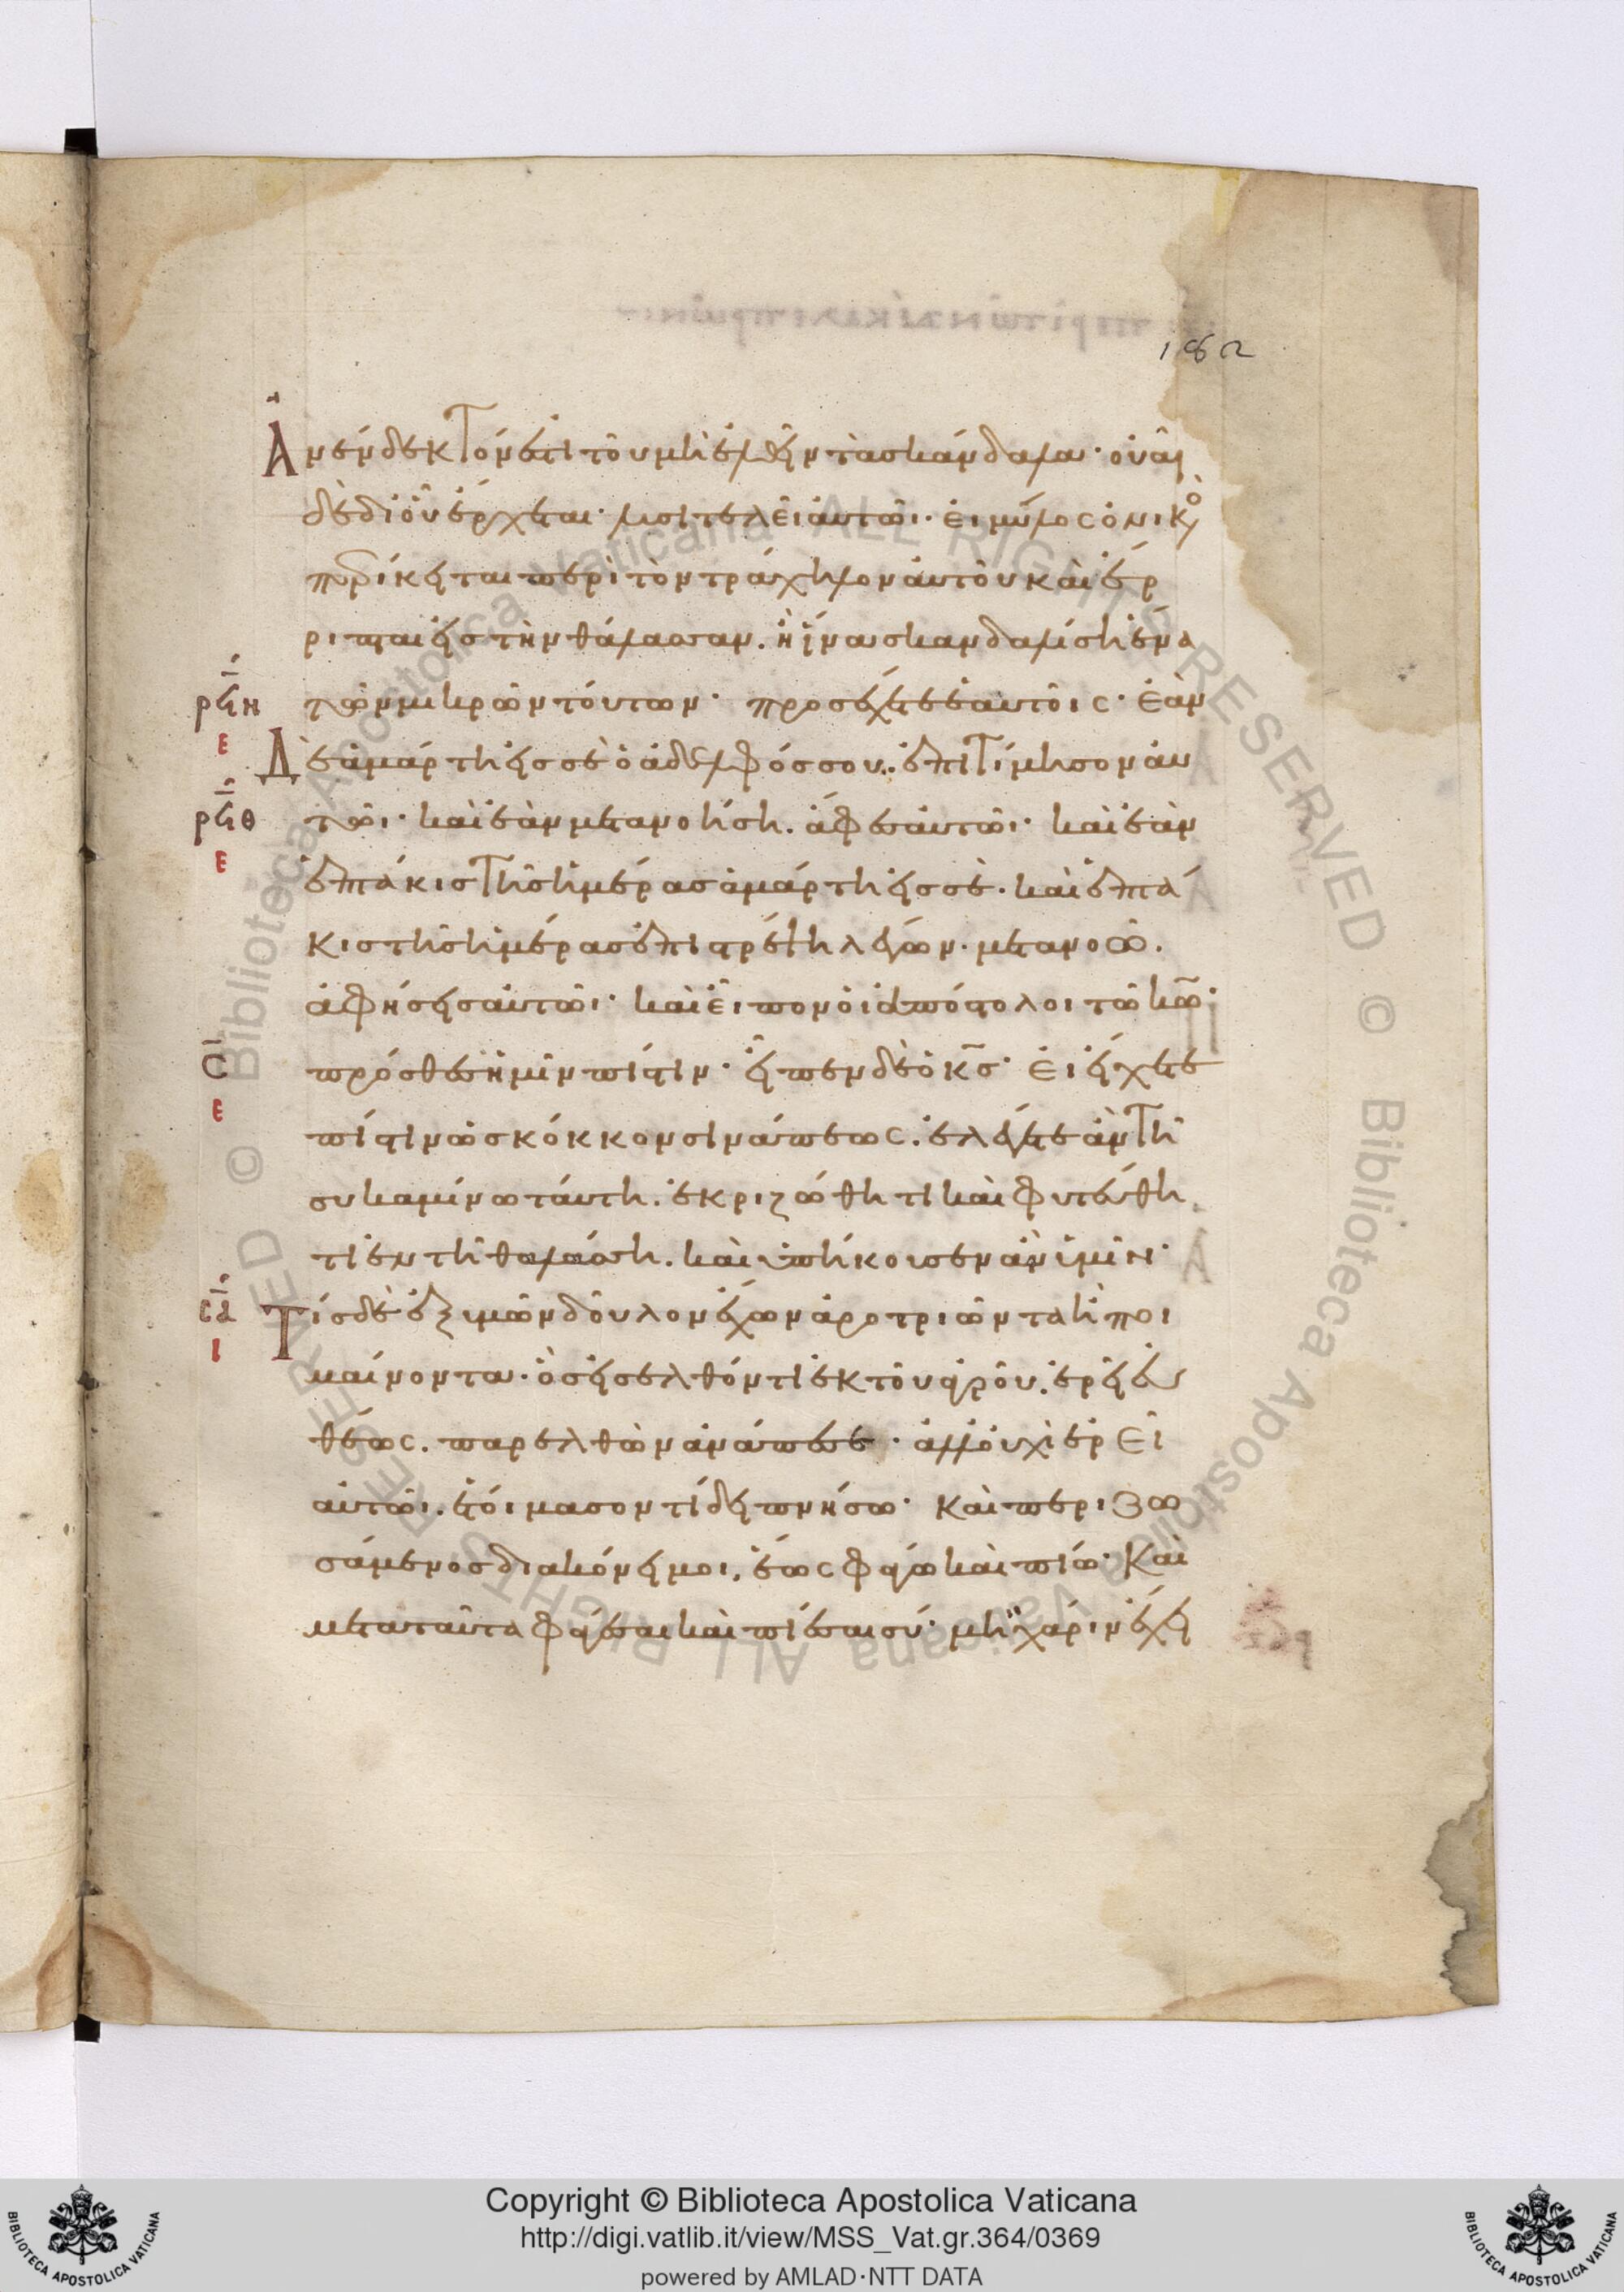 182
Ἀνένδεκτόν ἐστι τοῦ μὴ ἐλθεῖν τὰ σκάνδαλα· οὐαὶ
δὲ δι οὗ ἔρχεται· λυσιτελεῖ αὐτῶι· εἰ μύλος ὀνικὸ
περίκειται περὶ τὸν τράχηλον αὐτοῦ καὶ ἔρ
ριπται εἰς τὴν θάλασσαν. ἢ ἵνα σκανδαλίση ἕνα
ρϟη τῶν μικρῶν τούτων· προσέχετε ἑαυτοῖς· ἐὰν
ε
δὲ ἁμάρτη εἰς σὲ ὁ ἀδελφός σου. ἐπιτίμησον αὐ
ρϟθ τῶι· καὶ ἐὰν μετανοήση. ἄφες αὐτῶι· καὶ ἐὰν
ε
ἑπτάκις τῆς ἡμέρας ἁμάρτη εἰς σὲ. καὶ ἑπτά
κις τῆς ἡμέρας ἐπιστρέψη λέγων. μετανοῶ.
ἀφήσεις αὐτῶι· καὶ εἶπον οἱ ἀπόστολοι τῶ κω·
σ πρόσθες ἡμῖν πίστιν· εἶπεν δὲ ὁ κσ· εἰ εἴχετε
ε
πίστιν ὡς κόκκον σινάπεως. ἐλέγετε ἂν τῆ
συκαμίνω ταύτη. ἐκριζώθητι καὶ φυτεύθη
τι ἐν τῆ θαλάσση. καὶ ὑπήκουσεν ἂν ὑμῖν·
σα Τίς δὲ ἐξ ὑμῶν δοῦλον ἔχων ἀροτριῶντα ἢ ποι
ι
μαίνοντα· ὃς εἰσελθόντι ἐκ τοῦ ἀγροῦ. ἐρεῖ εὐ
θέως. παρελθὼν ἀνάπεσε· ἀλλ οὐχὶ ἐρεῖ
αὐτῶι. ἑτοίμασον τί δειπνήσω· καὶ περιζω
σάμενος διακόνει μοι. ἕως φάγω καὶ πίω· καὶ
μετὰ ταῦτα φάγεσαι καὶ πίεσαι σύ· μὴ χάριν ἔχει
Copyright © Biblioteca Apostolica Vaticana
http://digi.vatlib.it/view/MSS_Vat.gr.364/0369
powered by AMLAD·NTT DATA
BIBLIOTECA APOSTOLICA VATICANA
BIBLIOTECA APOSTOLICA VATICANA
© Biblioteca Apostolica Vaticana ALL RIGHTS RESERVED © Biblioteca Apostolica Vaticana ALL RIGHTS RESERVED